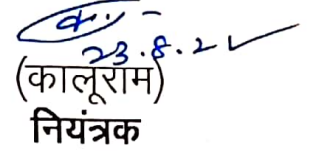 23.8.2
(कालूराम)
नियंत्रक